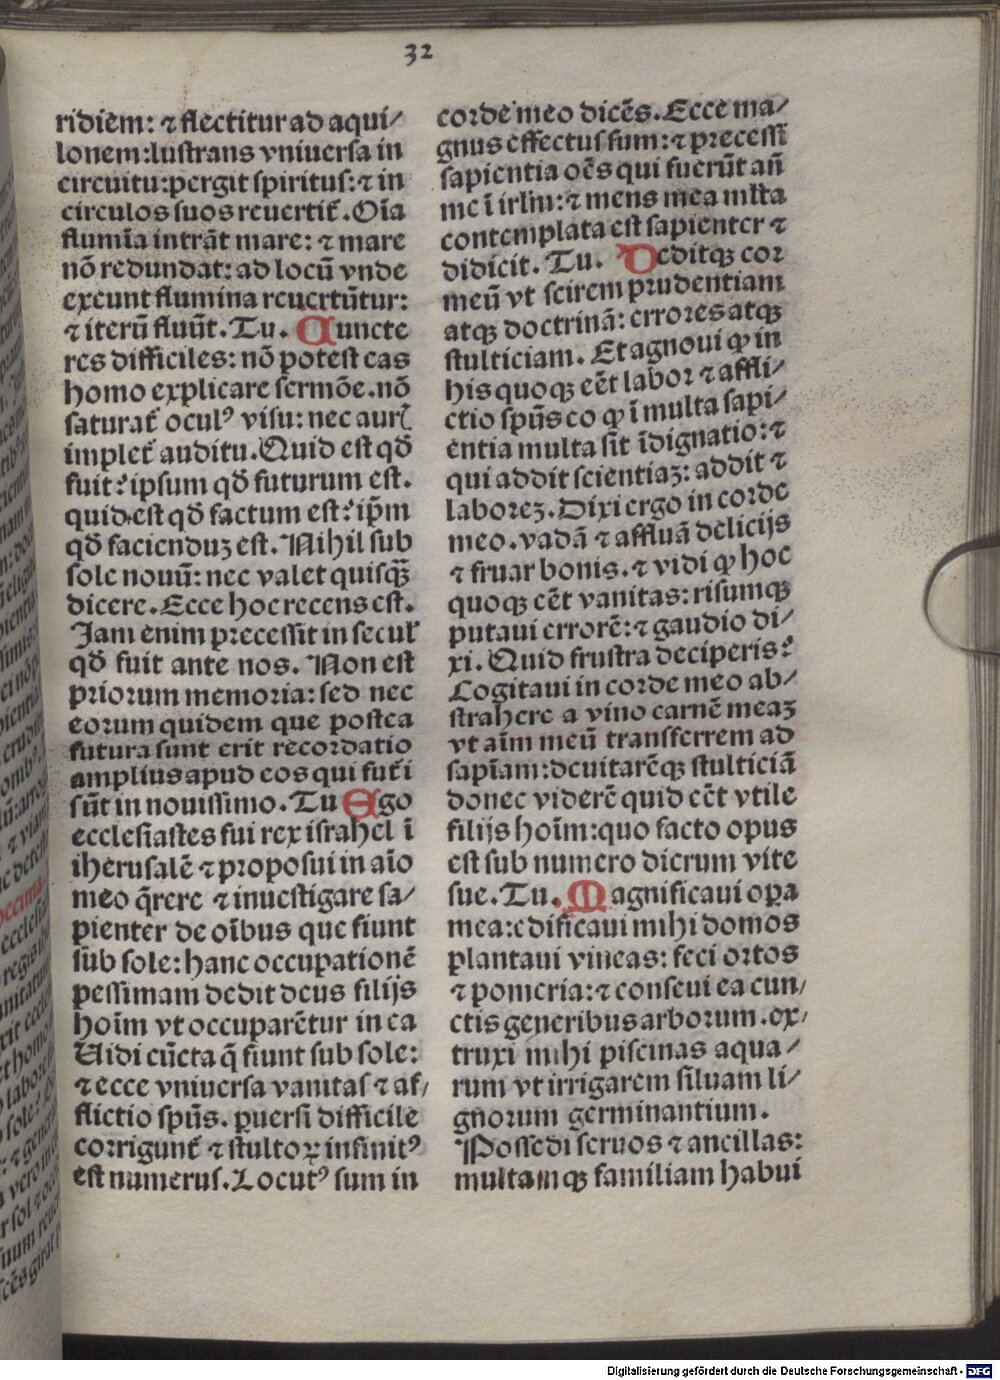 32
ridiem: ⁊ flectitur ad aqui⸗
lonem:lustrans vniuersa in
circuitu:pergit spiritus:⁊ in
circulos suos reuertit᷑. Oīa
flumīa intrāt mare: ⁊ mare
nō redundat: ad locū vnde
exeunt flumina reuertūtur:
⁊ iterū fluūt. Tu. Cuncte
res difficiles: nō potest eas
homo explicare sermōe.nō
saturat᷑ oculꝰ visu: nec aurꝭ
implet᷑ auditu.Quid est qđ
fuit? ipsum qđ futurum est.
quid est qđ factum est? ip̄m
qđ facienduꝫ est. Nihil sub
sole nouū: nec valet quisq̄̄
dicere. Ecce hoc recens est.
Jam enim p̄cessit in secul᷑
qđ fuit ante nos. Non est
priorum memoria: sed nec
eorum quidem que postea
futura sunt erit recordatio
amplius apud eos qui fut᷑i
sūt in nouissimo. Tu Ego
ecclesiastes fui rex israhel ī
iherusalē ⁊ proposui in aīo
meo q̄rere ⁊ inuestigare sa⸗
pienter de oībus que fiunt
sub sole: hanc occupationē
pessimam dedit deus filijs
hoīm vt occuparētur in ea
Uidi cūcta q̄ fiunt sub sole:
⁊ ecce vniuersa vanitas ⁊ af⸗
flictio spūs. ꝑuersi difficile
corrigunt᷑ ⁊ stultoꝝ infinitꝰ
est numerus. Locutꝰ sum in
corde meo dicēs. Ecce ma⸗
gnus effectus sum: ⁊ precessi
sapientia oēs qui fuerūt añ
me ī irlm̄: ⁊ mens mea ml̄ta
contemplata est sapienter ⁊
didicit. Tu. Deditqꝫ cor
meū vt scirem prudentiam
atqꝫ doctrinā: errores atqꝫ
stulticiam. Et agnoui ꝙ in
his quoqꝫ eēt labor ⁊ affli⸗
ctio spūs eo ꝙ ī multa sapi⸗
entia multa sit īdignatio: ⁊
qui addit scientiaꝫ: addit ⁊
laboreꝫ. Dixi ergo in corde
meo. vadā ⁊ affluā delicijs
⁊ fruar bonis. ⁊ vidi ꝙ hoc
quoqꝫ eēt vanitas: risumqꝫ
putaui errorē: ⁊ gaudio di⸗
xi. Quid frustra deciperis?
Cogitaui in corde meo ab⸗
strahere a vino carnē meaꝫ
vt aīm meū transferrem ad
sapīam: deuitarēqꝫ stulticiā
donec viderē quid eēt vtile
filijs hoīm: quo facto opus
est sub numero dierum vite
sue. Tu. Magnificaui oꝑa
mea: edificaui mihi domos
plantaui vineas: feci ortos
⁊ pomeria: ⁊ conseui ea cun⸗
ctis generibus arborum. ex⸗
truxi mihi piscinas aqua⸗
rum vt irrigarem siluam li⸗
gnorum germinantium.
Possedi seruos ⁊ ancillas:
multamqꝫ familiam habui
Digitalisierung gefördert durch die Deutsche Forschungsgemeinschaft - DFG